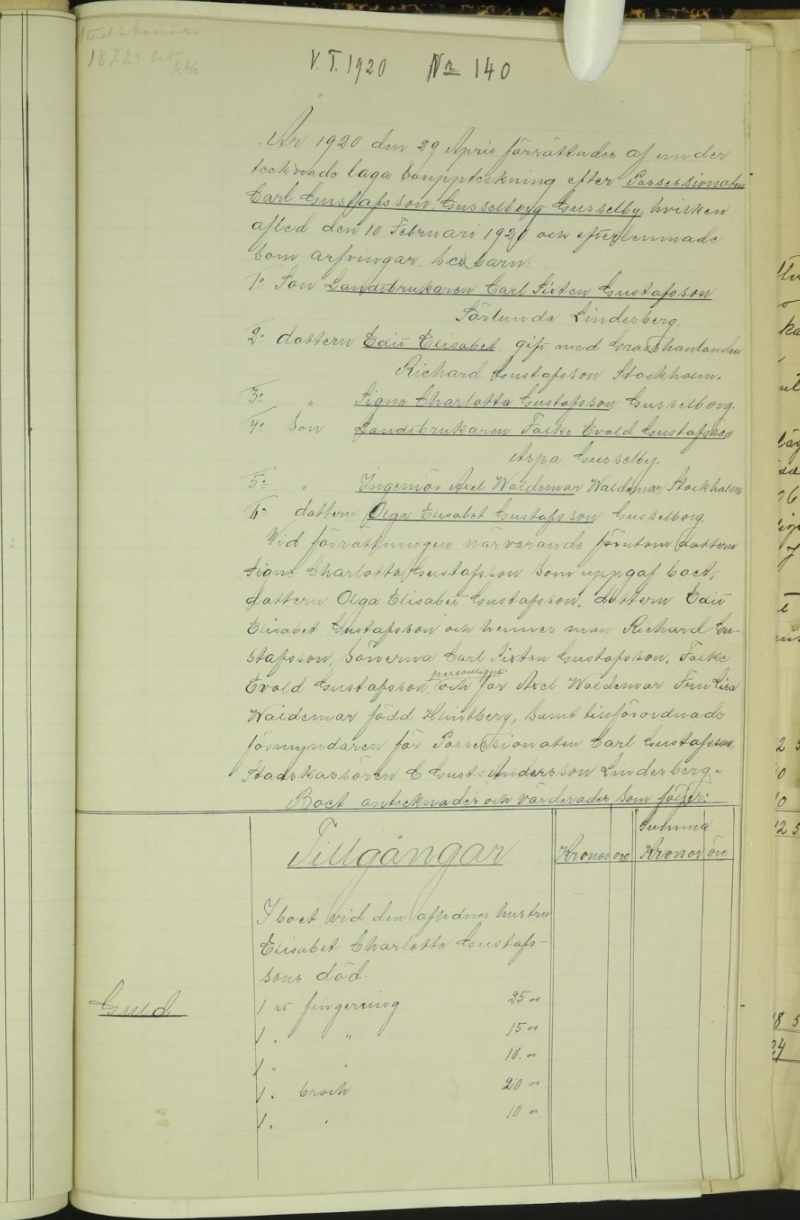 V.T. 1920 No 140
År 1920 den 29 April förrättades af under
tecknade laga bouppteckning efter Possessionaten
Carl Gustafsson Gusselborg Gusselby, hvilken
afled den 10 Februari 1920 och efterlemnade
som arfvingar sex barn:
1o Son Landtbrukaren Carl Sixten Gustafsson
Förlunda Linderberg.
2o dottern Edit Elisabet gift med Grosshandlanden
Richard Gustafsson Stockholm.
3o " Signe Charlotta Gustafsson Gusselborg.
4o Son Landtbrukaren Folke Evald Gustafsson
Aspa Gusselby.
5o " Ingeniör Axel Waldemar Waldemar Stockholm
6o dottern Olga Elisabet Gustafsson Gusselborg.
Vid förrättningen närvarande förutom dottern
Signe Charlotta Gustafsson som uppgaf boet,
dottern Olga Elisabet Gustafsson, dottern Edit
Elisabet Gustafsson och hennes man Richard Gu-
stafsson, sönerna Carl Sixten Gustafsson, Folke
Evald Gustafsson, personligen och för Axel Waldemar Fru
Waldemar född Klintberg, samt tillförordnade
förmyndaren för Possessionaten Carl Gustafsson,
Stadskassören C Gust. Andersson Linderberg.
Boet antecknades och värderades som följer:
Tillgångar Kronor öre Summa Kronor öre
I boet vid den aflidnes hustru
Elisabet Charlotta Gustafs-
sons död.
Guld
1 st fingerring 25 "
1 " " 15 "
1 " " 10 "
1 " broch 20 "
1 " " 10 "